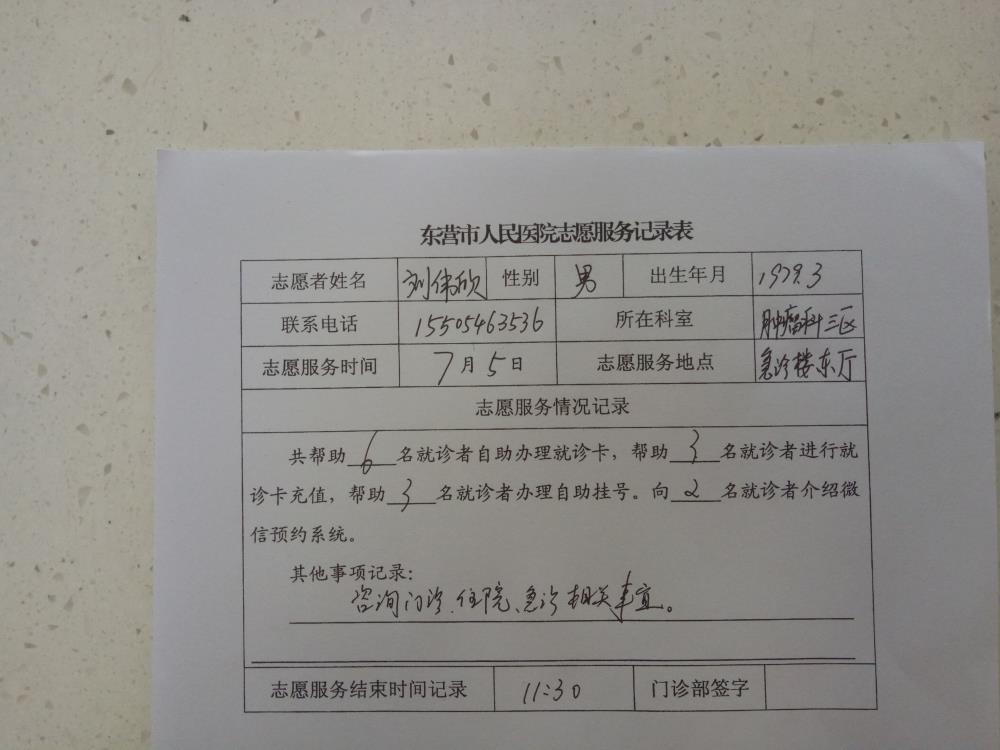 东营市人民医院志愿服务记录表
志愿者姓名 刘伟欣 性别 男 出生年月 1979.3
联系电话 15505463536 所在科室 肿瘤科三区
志愿服务时间 7月5日 志愿服务地点 急诊楼东厅
志愿服务情况记录
共帮助6名就诊者自助办理就诊卡，帮助3名就诊者进行就
诊卡充值，帮助3名就诊者办理自助挂号。向2名就诊者介绍微
信预约系统。
其他事项记录：
咨询门诊、住院、急诊相关事宜。
志愿服务结束时间记录 11:30 门诊部签字